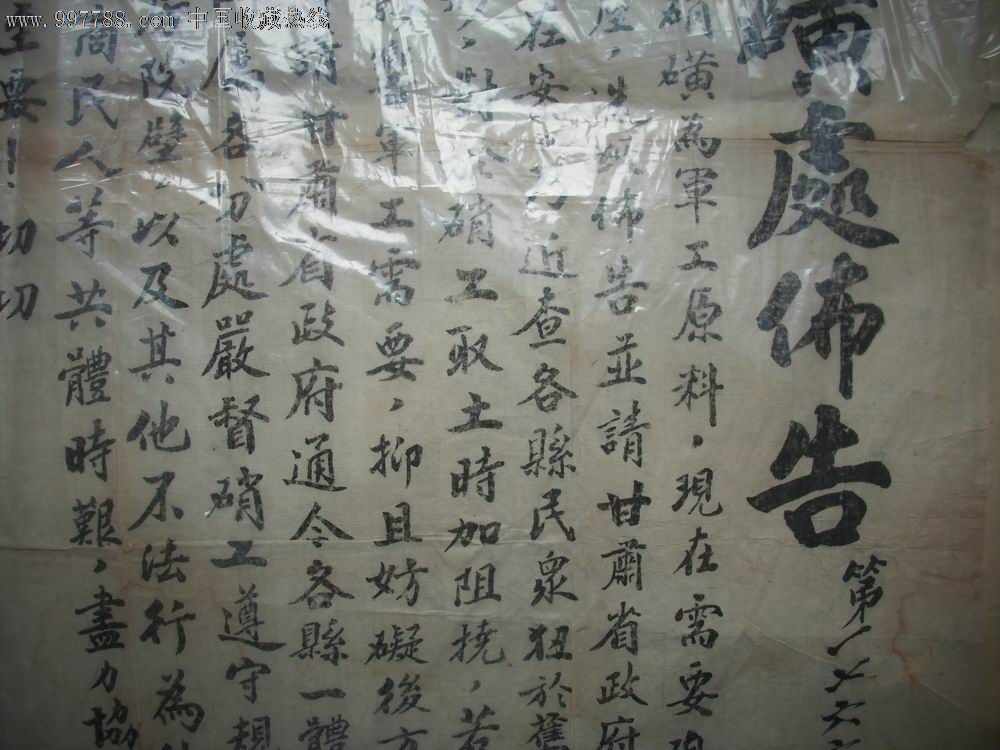 www.997788.com 中国收藏热线
處佈告
第一六六
硝磺為軍工原料，現在需要
佈告並請甘肅省政府
在安 近查各縣民衆狃於舊
硝工取土時加阻撓，若
軍工需要，抑且妨礙後方
甘肅省政府通令各縣一體
各 處嚴督硝工遵守規
院壁，以及其他不法行為
商民人等共體時艱，盡力協
至要！切切